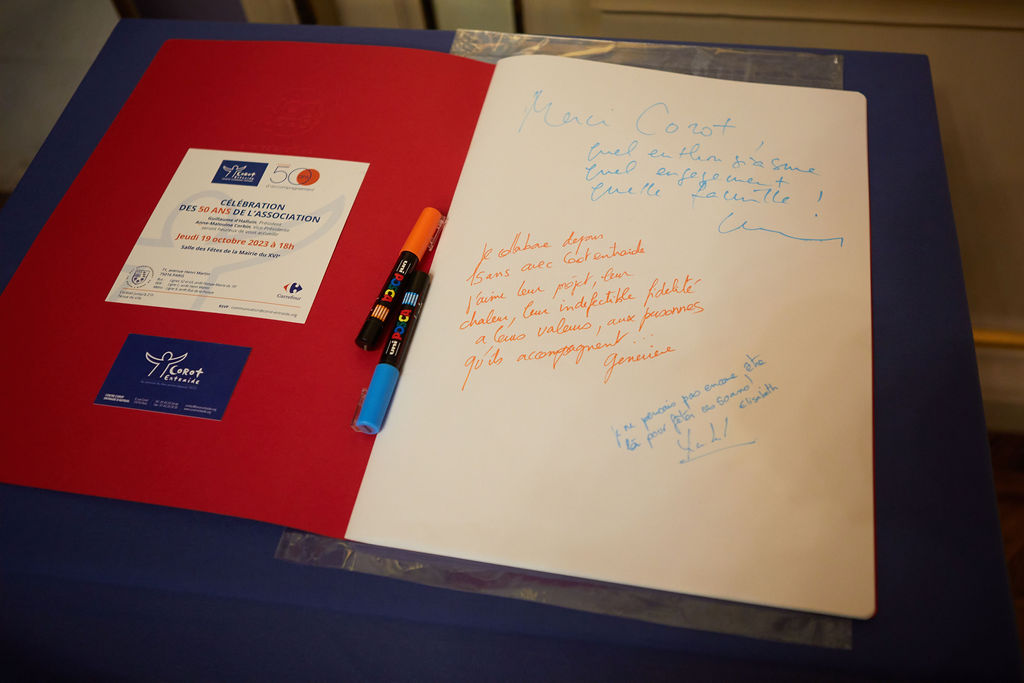 COROT
ENTRAIDE
50
d'accompagnement
CÉLÉBRATION
DES 50 ANS DE L'ASSOCIATION
Guillaume d'Hallivin, Président
Anne-Malouine Corbin, Vice-Présidente
seront heureux de vous accueillir
Jeudi 19 octobre 2023 à 18h
Salle des Fêtes de la Mairie du XVIe
71, avenue Henri Martin
75016 PARIS
Carrefour
RSVP
COROT
ENTRAIDE
uni POSCA
uni POSCA
Merci Corot
quel enthousiasme
quel engagement
quelle famille !
Je collabore depuis
15 ans avec Corot entraide
J'aime leur projet, leur
chaleur, leur indéfectible fidélité
a leurs valeurs, aux personnes
qu'ils accompagnent...
Geneviève
Je ne pensais pas encore être
là pour fêter ces 50 ans !
Elisabeth